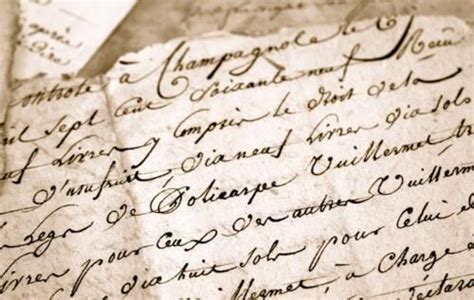 après
Controlé à Champagnole le 6
mil sept cent soixante neuf Recu
neuf Livres y Compris le droit de la
d'usufruit, dix neuf Livres dix sols
le Legs de Policarpe Vuillermet,
Livres pour Ceux des autres Vuillerm
dix huit sols pour Celui d
Vuillermet, à Charge